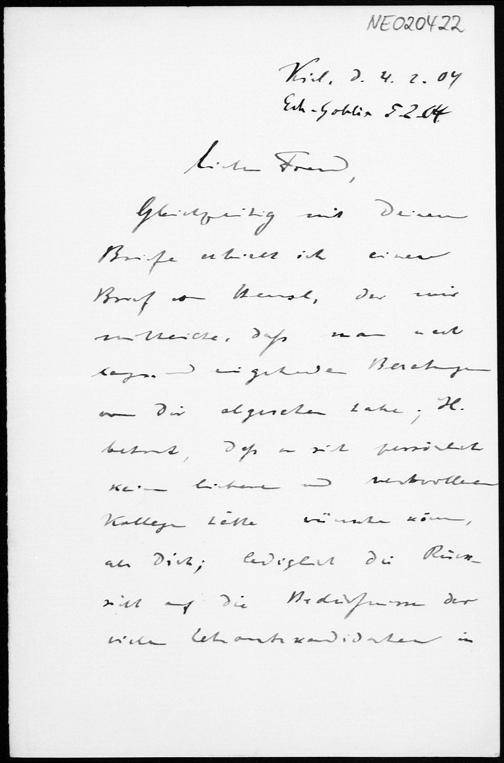 NE020422
Kiel, d. 4. 2. 04
5 2 04
Lieber Freund,
Gleichzeitig mit Deinem
Briefe erhielt ich einen
Brief von Hensel, der mir
mitteilte, daß man nach
langen und eingehenden Beratungen
von Dir abgesehen habe; H.
betont, daß er sich persönlich
keinen lieberen und wertvolleren
Kollegen hätte wünschen können,
als Dich; lediglich die Rück-
sicht auf die Bedürfnisse der
vielen Lehramtskandidaten in